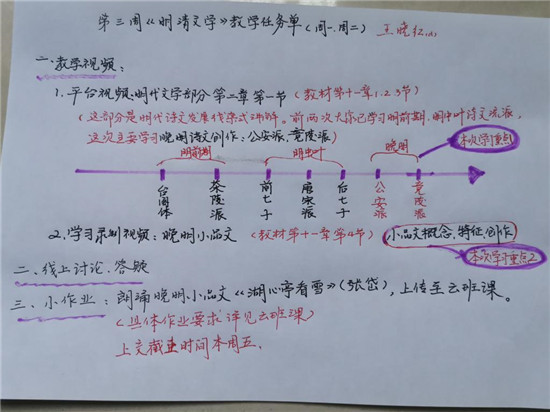 第三周《明清文学》教学任务单(周一、周二) 王晓红
一、教学视频:
1、平台视频:明代文学部分第二章第一节(教材第十一章1.2.3节)
(这部分是明代诗文发展代条式讲解。前两次大家已学习明前期、明中叶诗文流派,
这次主要学习晚明诗文创作:公安派,竟陵派)
明前期 明中叶 晚明 本次学习重点1
台阁体 茶陵派 前七子 唐宋派 后七子 公安派 竟陵派
2、学习录制视频:晚明小品文 (教材第十一章第4节) 小品文概念、特征、创作
本次学习重点2
二、线上讨论、答疑
三、小作业:朗诵晚明小品文《湖心亭看雪》(张岱),上传至云班课。
(具体作业要求详见云班课)
上交截止时间本周五.